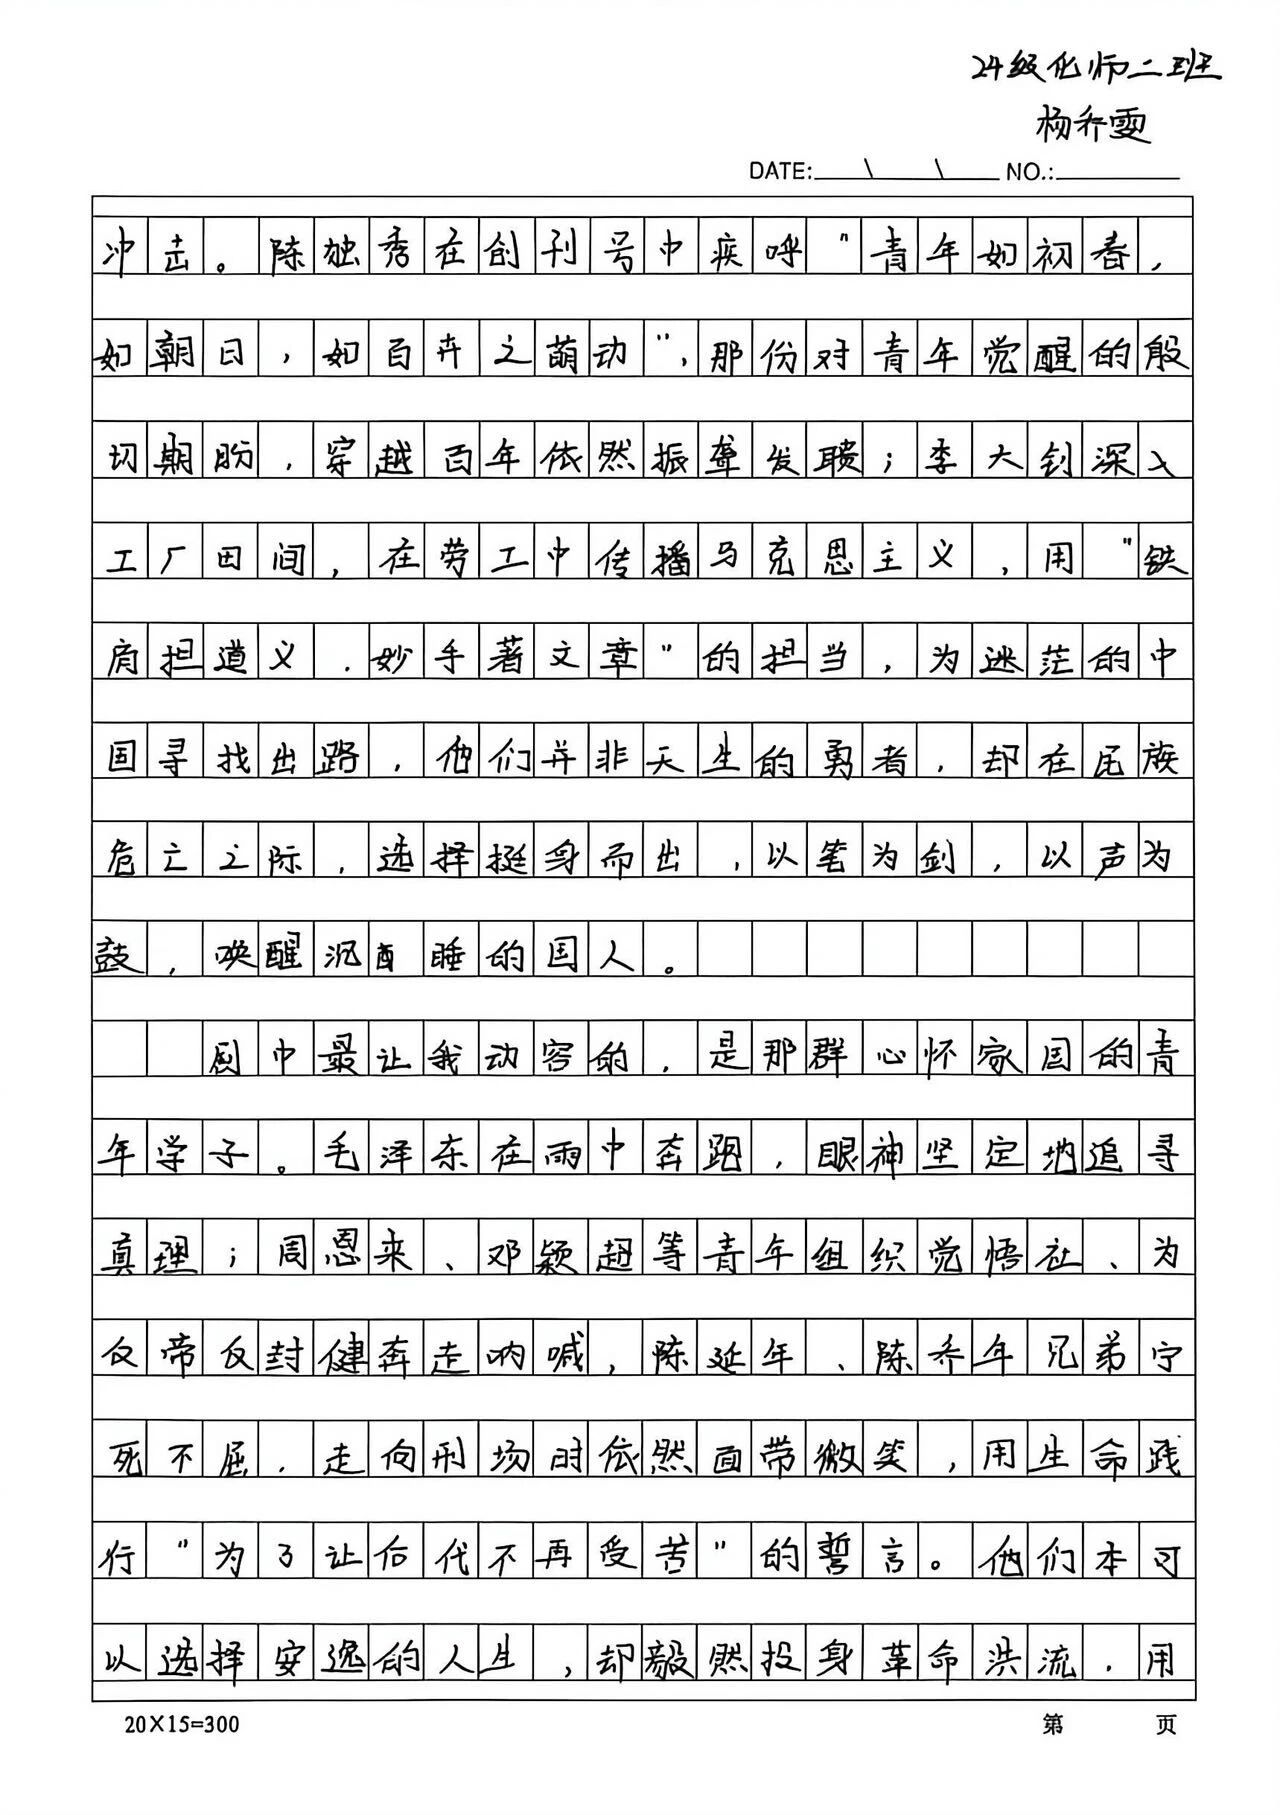 24级化师二班
杨乔雯
DATE: \ \ NO.:
冲击。陈独秀在创刊号中疾呼"青年如初春，
如朝日，如百卉之萌动"，那份对青年觉醒的殷
切期盼，穿越百年依然振聋发聩；李大钊深入
工厂田间，在劳工中传播马克思主义，用"铁
肩担道义，妙手著文章"的担当，为迷茫的中
国寻找出路，他们并非天生的勇者，却在民族
危亡之际，选择挺身而出，以笔为剑，以声为
鼓，唤醒沉睡的国人。
剧中最让我动容的，是那群心怀家国的青
年学子。毛泽东在雨中奔跑，眼神坚定地追寻
真理；周恩来、邓颖超等青年组织觉悟社、为
反帝反封健奔走呐喊，陈延年、陈乔年兄弟宁
死不屈，走向刑场时依然面带微笑，用生命践
行"为了让后代不再受苦"的誓言。他们本可
以选择安逸的人生，却毅然投身革命洪流，用
20×15=300
第 页